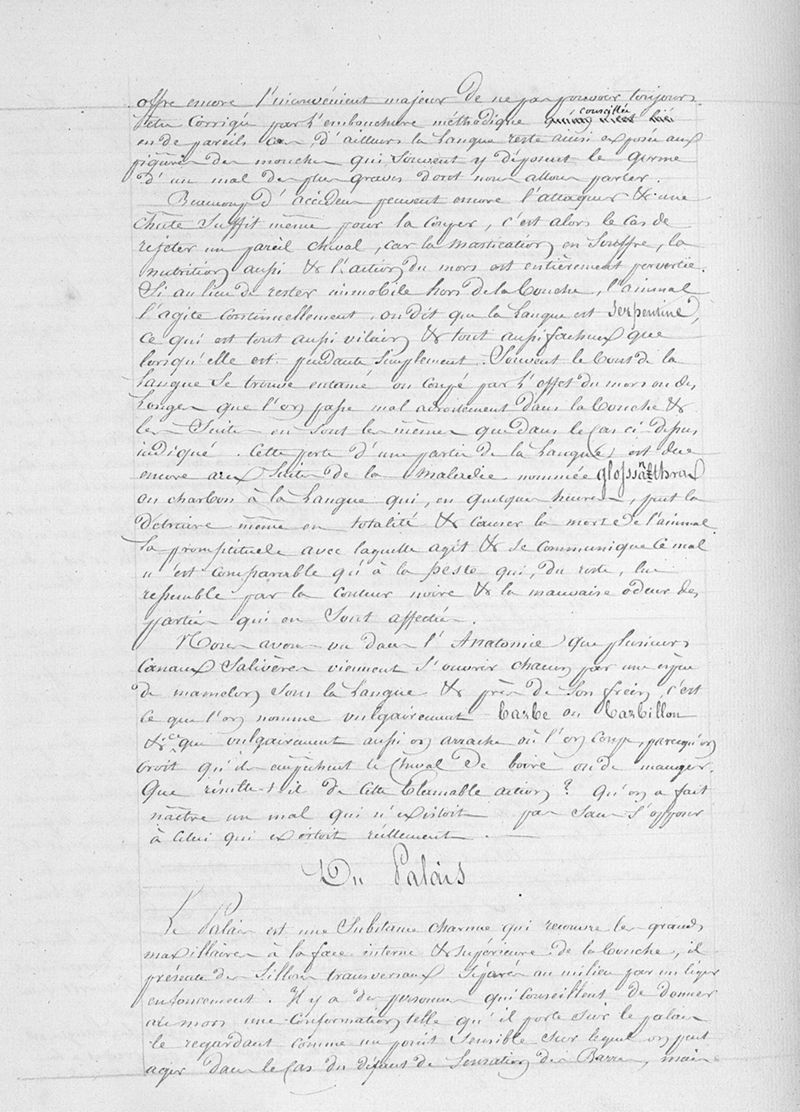 offre encore l'inconvénient majeur de ne pas pouvoir toujours
être corrigée par l'embouchure méthodique conseillée
en de pareils cas, d'ailleurs la langue reste ainsi exposée aux
piqûres des mouches qui souvent y déposent le germe
d'un mal des plus graves dont nous allons parler.
Beaucoup d'accidens peuvent encore l'attaquer & une
chute suffit même pour la couper, c'est alors le cas de
rejeter un pareil cheval, car la mastication en souffre, la
nutrition aussi & l'action du mors est entièrement pervertie.
Si au lieu de rester immobile hors de la bouche, l'animal
l'agite continuellement, on dit que la langue est serpentine,
ce qui est tout aussi vilain & tout aussi facheux que
lorsqu'elle est pendante simplement. Souvent le bout de la
langue se trouve entamé ou coupé par l'effet du mors ou des
longes que l'on passe mal adroitement dans la bouche &
les suites en sont les mêmes que dans le cas ci dessus
indiqué. Cette perte d'une partie de la langue est due
encore aux suites de la maladie nommée glossanthrax
ou charbon à la langue qui, en quelques heures, peut la
détruire même en totalité & causer la mort de l'animal
la promptitude avec laquelle agit & se communique ce mal
n'est comparable qu'à la peste qui, du reste, lui
ressemble par la couleur noire & la mauvaise odeur des
parties qui en sont affectées.
Nous avons vu dans l'Anatomie que plusieurs
canaux salivères viennent s'ouvrir chacun par une espèce
de mamelon sous la langue & près de son frein, c'est
ce que l'on nomme vulgairement barbe ou barbillon
& que vulgairement aussi on arrache où l'on coupe, parcequ'on
croit qu'ils empêchent le cheval de boire ou de manger.
Que résulte-t-il de cette blamable action ? Qu'on a fait
naître un mal qui n'existoit pas sans s'opposer
à celui qui existoit réellement.
Du Palais
Le Palais est une substance charnue qui recouvre les grands
maxillaires à la face interne & supérieure de la bouche, il
présente des sillons transversaux séparés au milieu par un léger
enfoncement. Il y a des personnes qui conseillent de donner
au mors une conformation telle qu'il porte sur le palais
le regardant comme un point sensible sur lequel on peut
agir dans le cas du défaut de sensation des Barres, mais